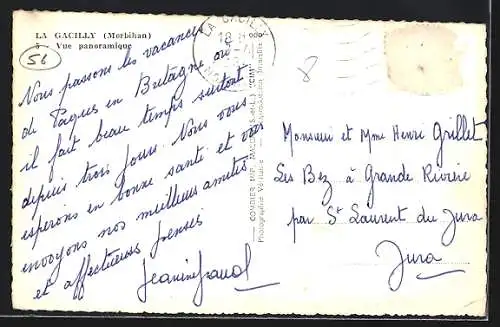 LA GACILLY (Morbihan)
5 - Vue panoramique
56
LA GACILLY
18 H
8
Nous passons les vacances
de Pâques en Bretagne où
il fait beau temps surtout
depuis trois jours. Nous vous
espérons en bonne santé et vous
envoyons nos meilleurs amitiés
et affectueuses pensées
Monsieur et Mme Henri Grillet
Les Bez à Grande Rivière
par St Laurent du Jura
Jura